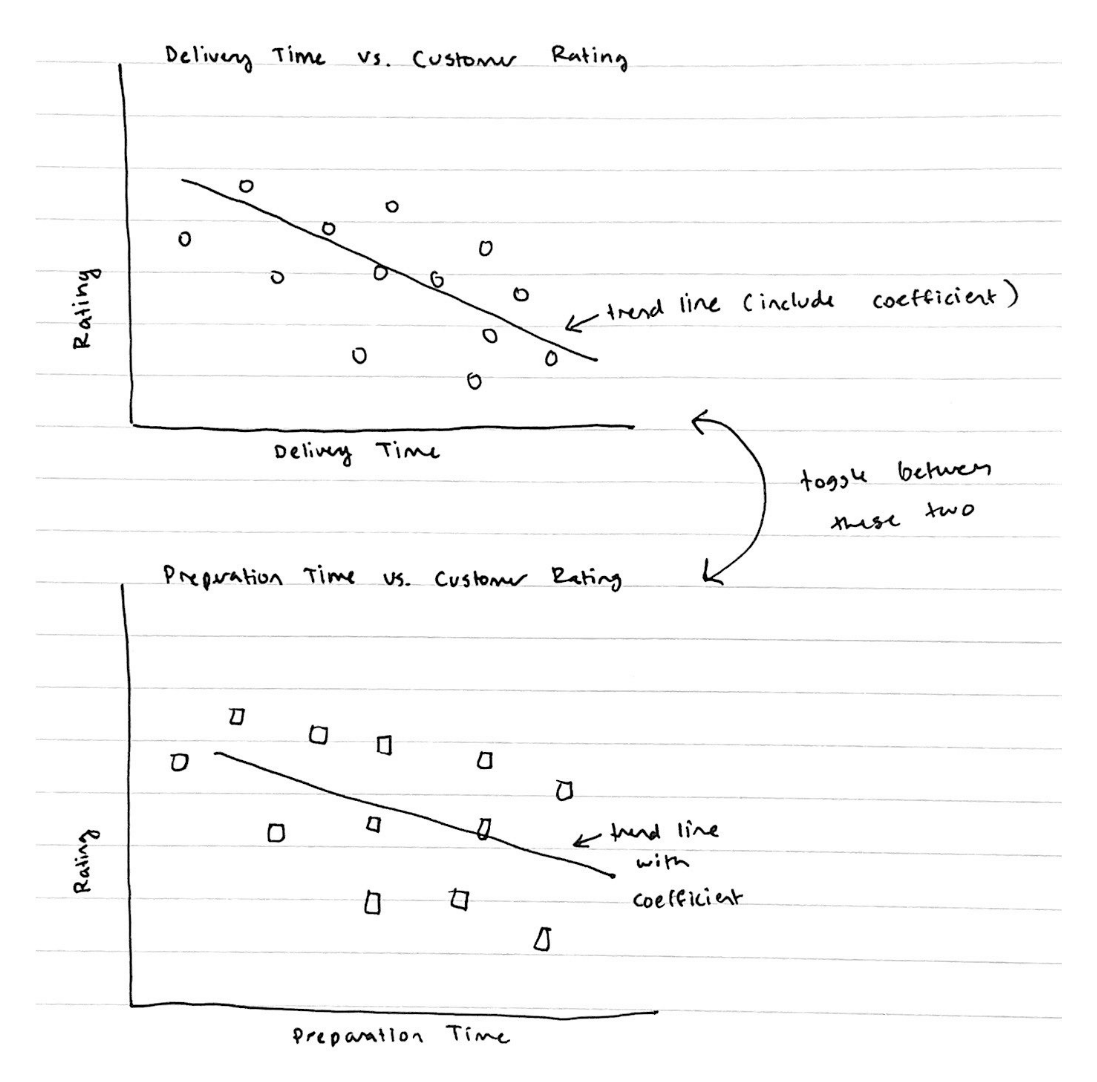 Delivery Time vs. Customer Rating
Rating
trend line (include coefficient)
Delivery Time
toggle between
these two
Preparation Time vs. Customer Rating
Rating
trend line
with
coefficient
Preparation Time